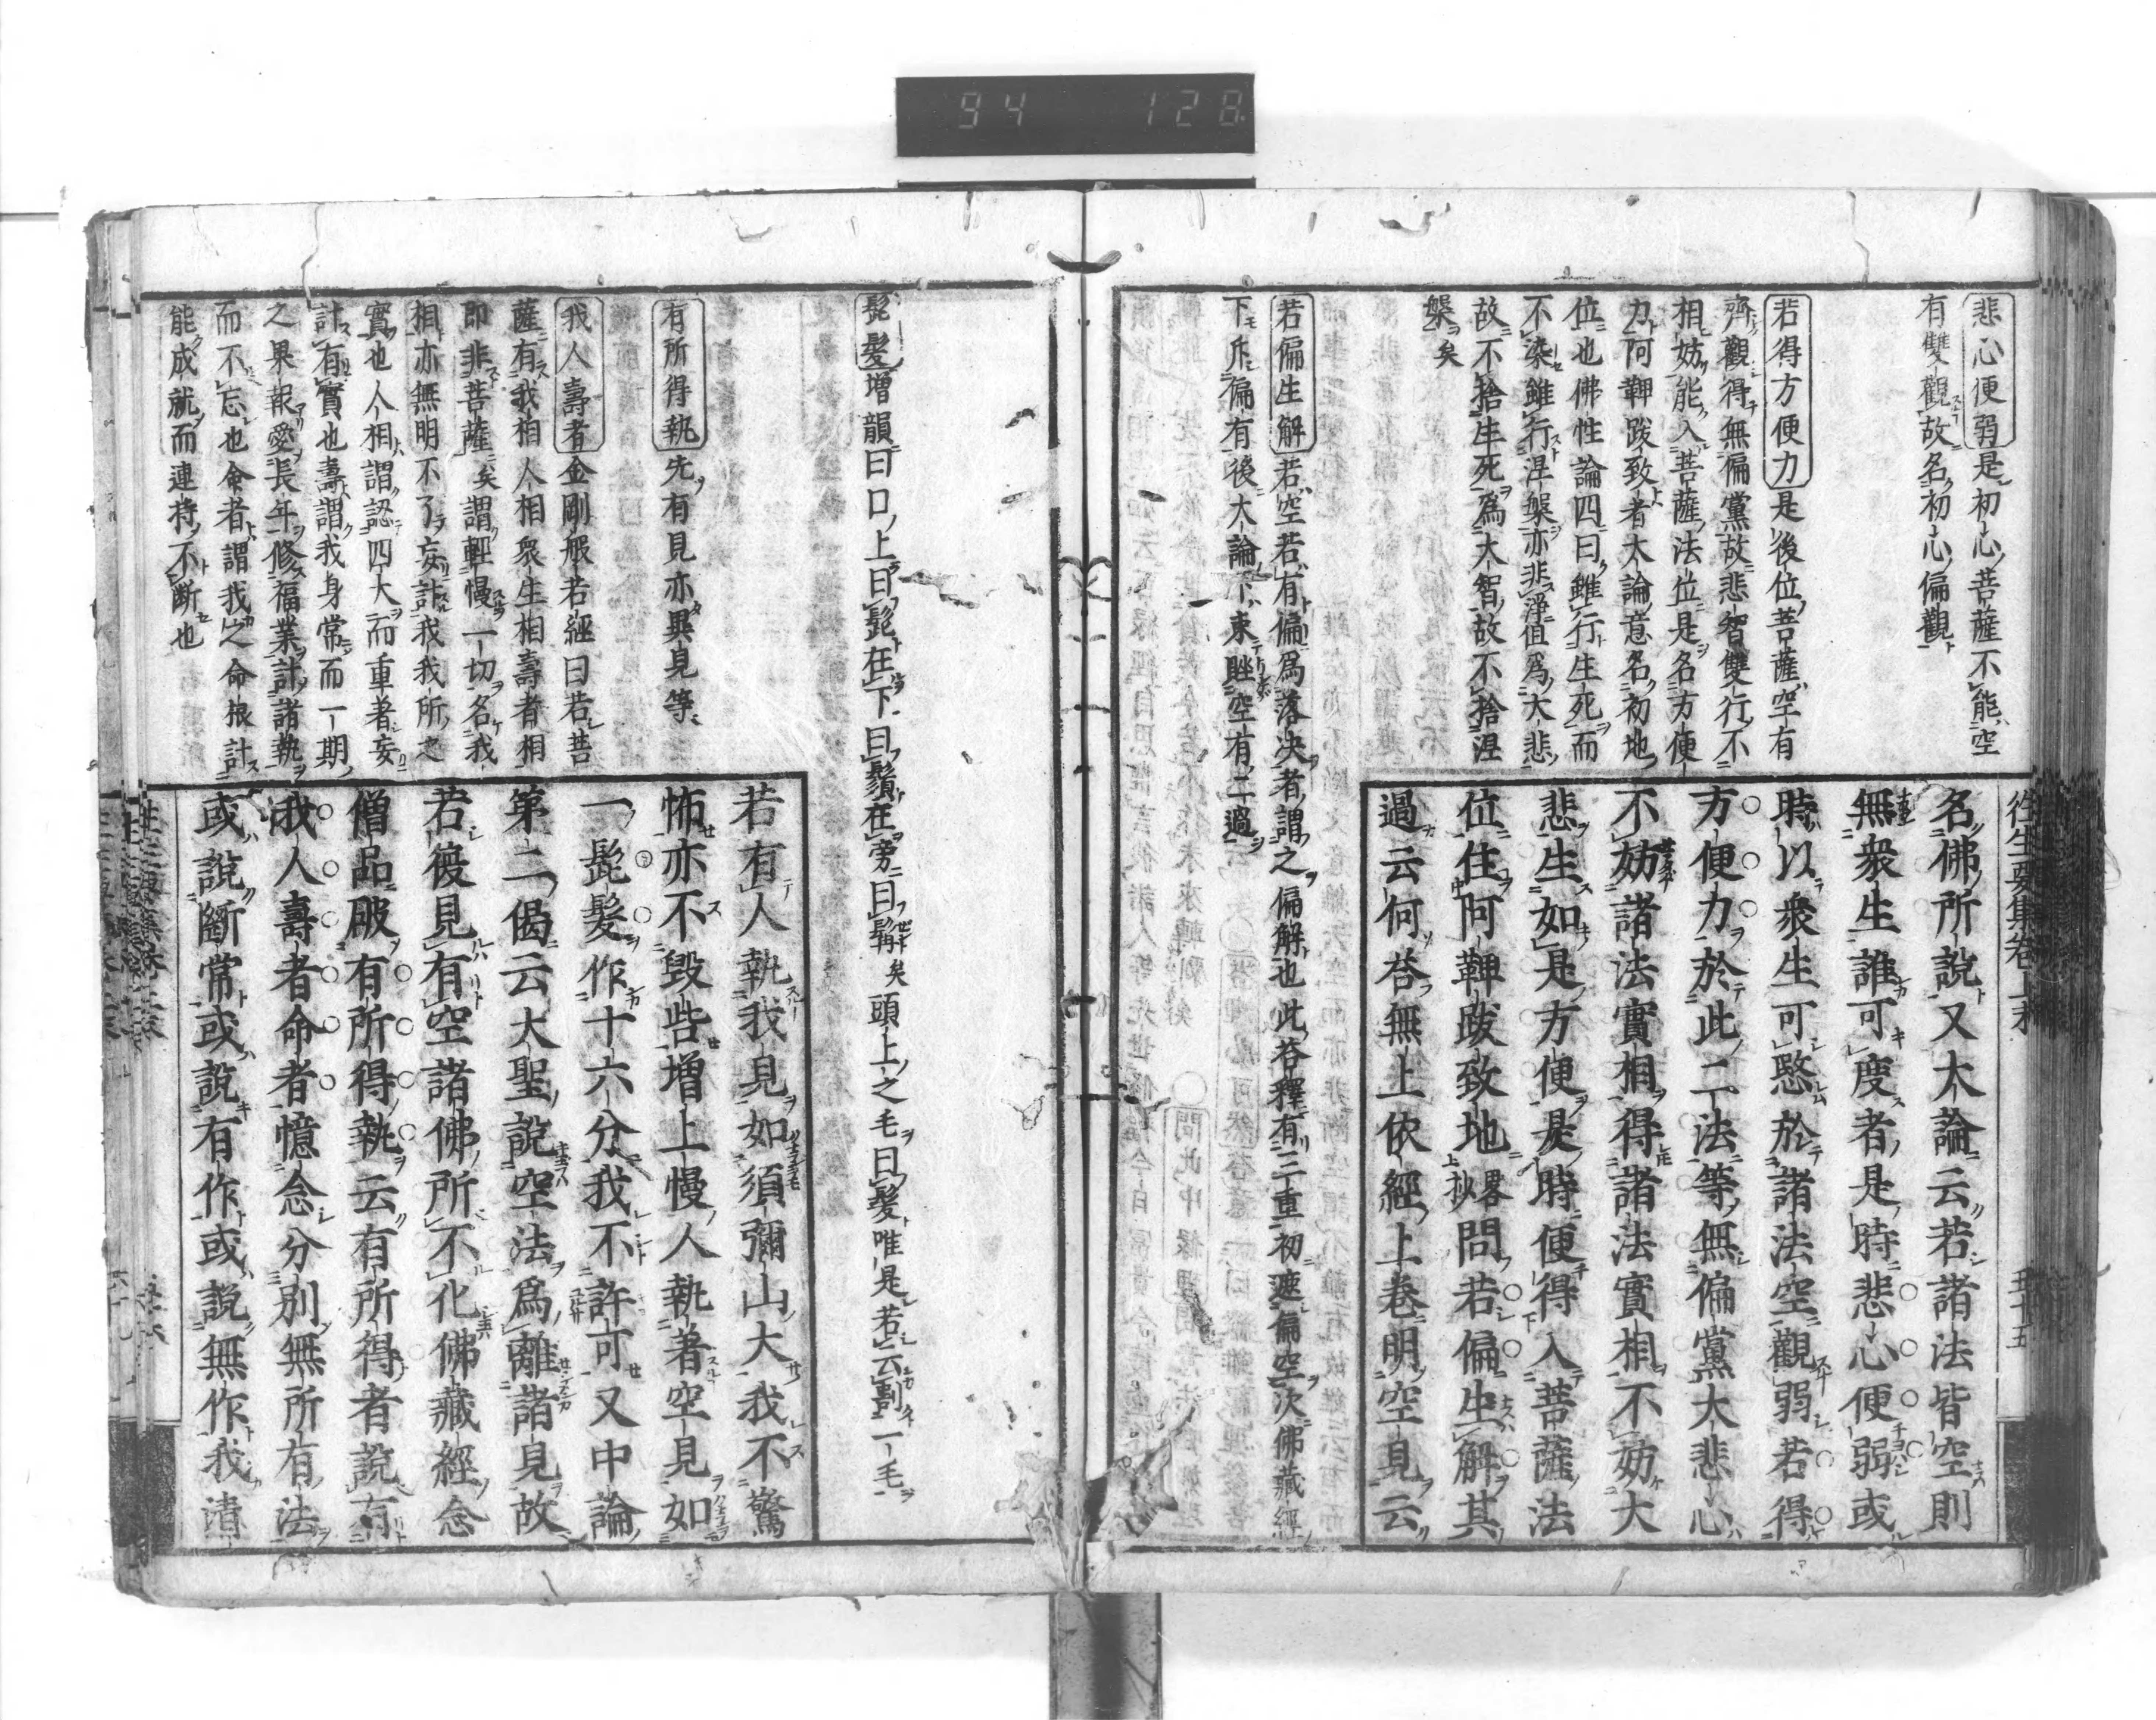 94 128
往生要集卷上末
五十五
悲心便弱是初心菩薩不能空
有雙觀故名初心偏觀
若得方便力是後位菩薩空有
齊觀得無偏黨故悲智雙行不
相妨能入菩薩法位是名方便
力阿鞞跋致者大論意名初地
位也佛性論四曰雖行生死而
不染雖行涅槃亦非淨值爲大悲
故不捨生死爲大智故不捨涅
槃矣
若偏生解若空若有偏爲落決者謂之偏解也此荅釋有三重初遮偏空次佛藏經
下斥偏有後大論下束䏨空有二過
名佛所說又大論云若諸法皆空則
無衆生誰可度者是時悲心便弱或
時以衆生可愍於諸法空觀弱若得
方便力於此二法等無偏黨大悲心
不妨諸法實相得諸法實相不妨大
悲生如是方便是時便得入菩薩法
位住阿鞞跋致地畧抄上問若偏生解其
過云何荅無上依經上卷明空見云
髭髮增韻曰口上曰髭在下曰鬚在旁曰髯矣頭上之毛曰髮唯是若云劃一毛
有所得執先有見亦異見等
我人壽者金剛般若經曰若菩
薩有我相人相衆生相壽者相
即非菩薩矣謂輕慢一切名我
相亦無明不了妄計我我所之
實也人相謂認四大而重著妄
計有實也壽謂我身常而一期
之果報愛長年修福業計諸執
而不忘也命者謂我之命根計
能成就而連持不斷也
若有人執我見如須彌山大我不驚
怖亦不毀呰增上慢人執著空見如
一髭髮作十六分我不許可又中論
第二偈云大聖說空法爲離諸見故
若復見有空諸佛所不化佛藏經念
僧品破有所得執云有所得者說有
我人壽者命者憶念分別無所有法
或說斷常或說有作或說無作我淸